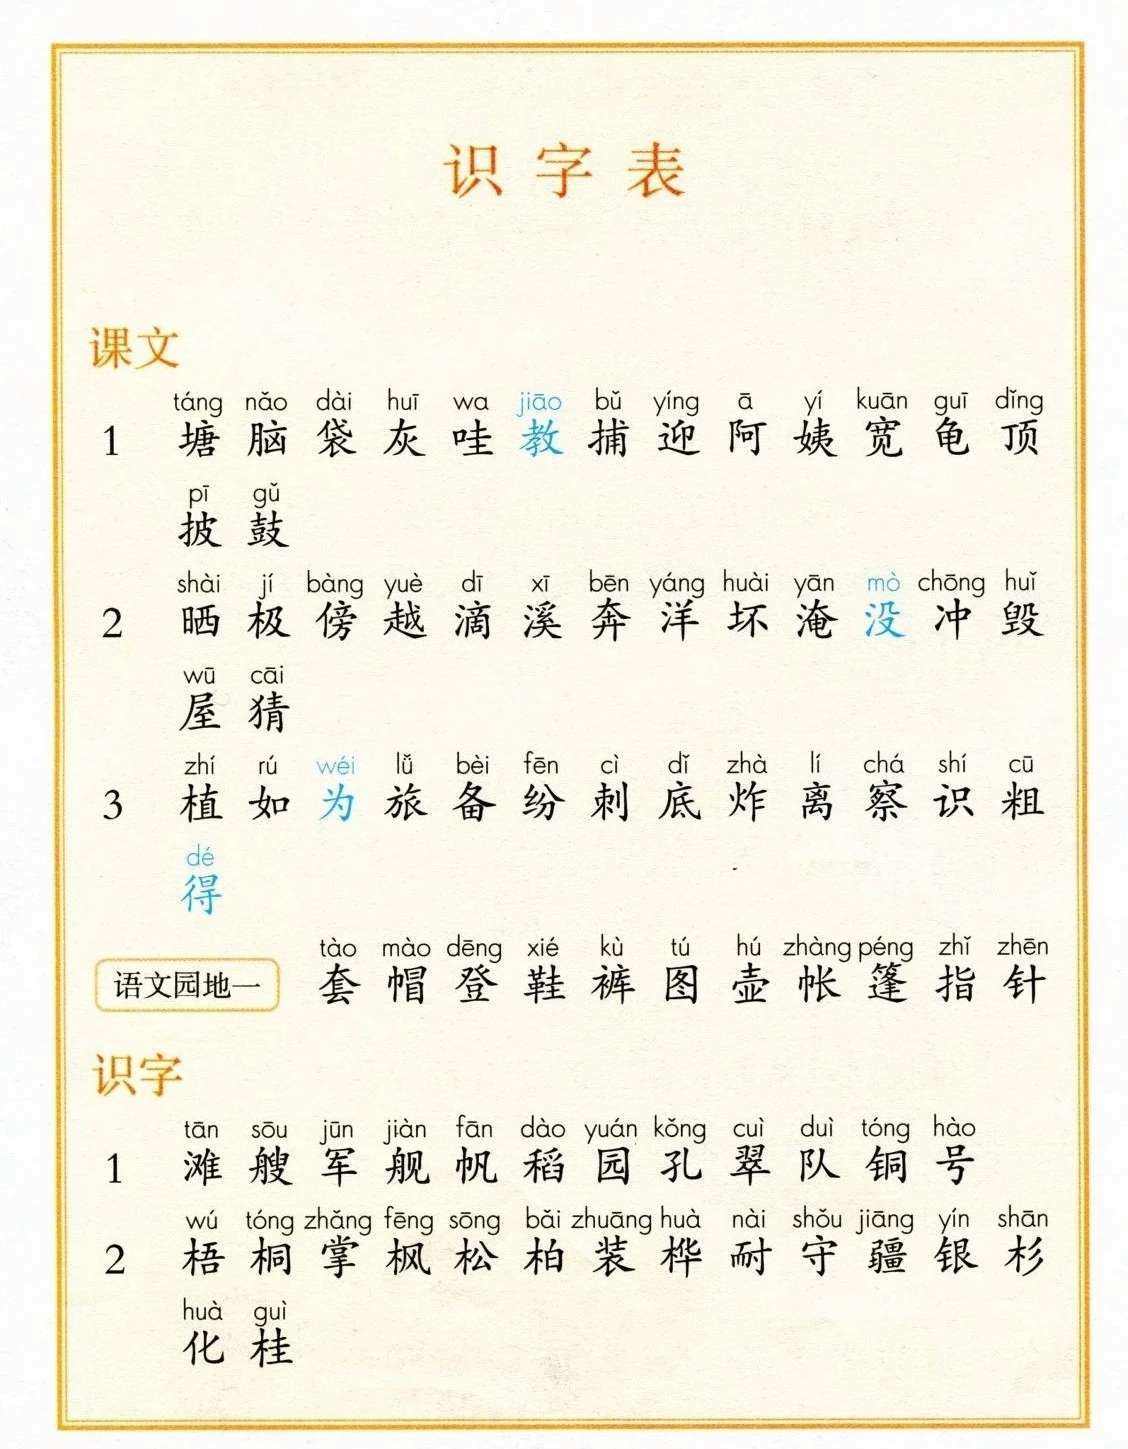 识字表
课文
táng nǎo dài huī wa jiāo bǔ yíng ā yí kuān guī dǐng
1 塘 脑 袋 灰 哇 教 捕 迎 阿 姨 宽 龟 顶
pī gǔ
披 鼓
shài jí bàng yuè dī xī bēn yáng huài yān mò chōng huǐ
2 晒 极 傍 越 滴 溪 奔 洋 坏 淹 没 冲 毁
wū cāi
屋 猜
zhí rú wéi lǚ bèi fēn cì dǐ zhà lí chá shí cū
3 植 如 为 旅 备 纷 刺 底 炸 离 察 识 粗
dé
得
tào mào dēng xié kù tú hú zhàng péng zhǐ zhēn
语文园地一 套 帽 登 鞋 裤 图 壶 帐 篷 指 针
识字
tān sōu jūn jiàn fān dào yuán kǒng cuì duì tóng hào
1 滩 艘 军 舰 帆 稻 园 孔 翠 队 铜 号
wú tóng zhǎng fēng sōng bǎi zhuāng huà nài shǒu jiāng yín shān
2 梧 桐 掌 枫 松 柏 装 桦 耐 守 疆 银 杉
huà guì
化 桂